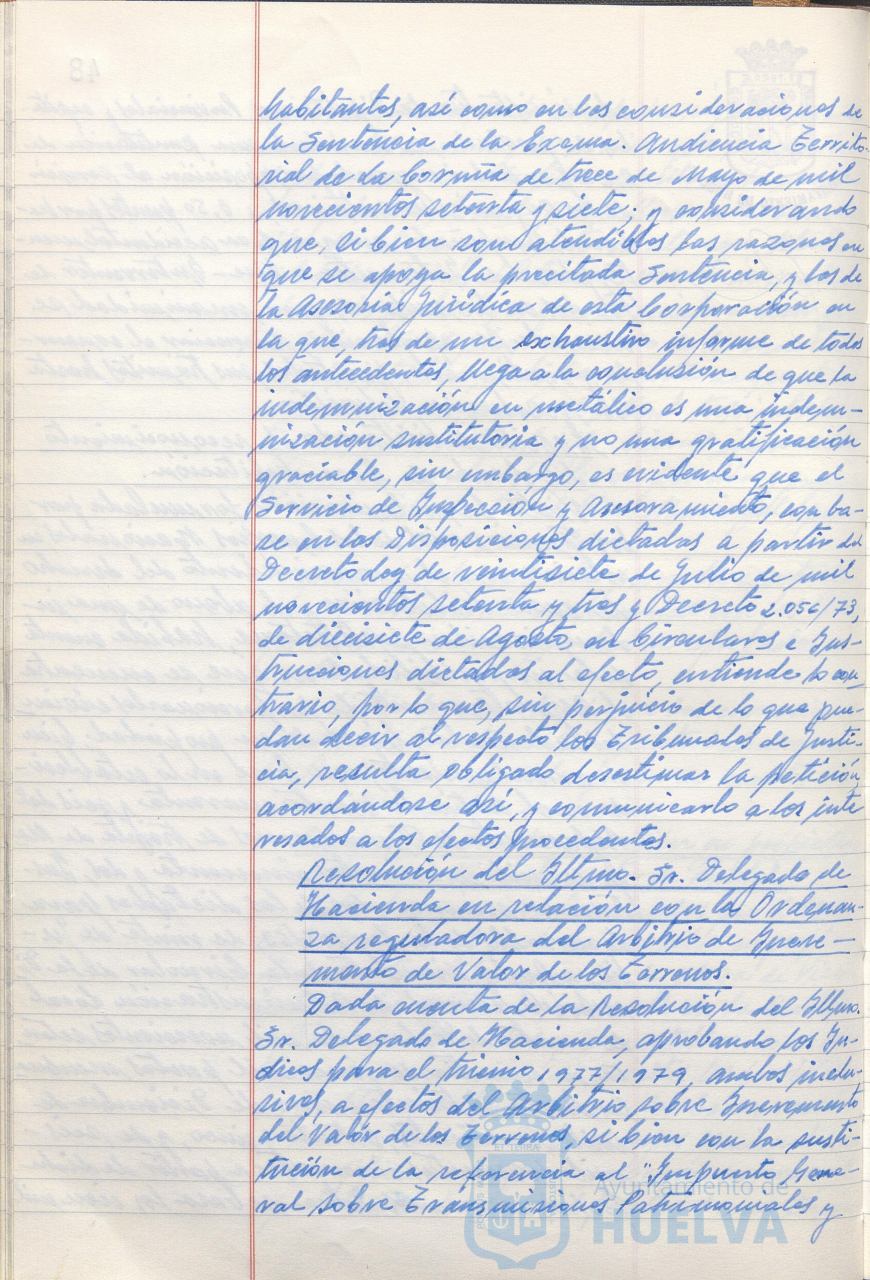 habitantes, así como en las consideraciones de
la Sentencia de la Excma. Audiencia Territo-
rial de La Coruña de trece de Mayo de mil
novecientos setenta y siete; y considerando
que, si bien son atendibles las razones en
que se apoya la precitada Sentencia, y las de
la Asesoría Jurídica de esta Corporación en
la que, tras de un exhaustivo informe de todos
los antecedentes, llega a la conclusión de que la
indemnización en metálico es una indem-
nización sustitutoria y no una gratificación
graciable, sin embargo, es evidente que el
Servicio de Inspección y Asesoramiento, con ba-
se en las Disposiciones dictadas a partir del
Decreto Ley de veintisiete de Julio de mil
novecientos setenta y tres y Decreto 2.056/73,
de diecisiete de Agosto, en Circulares e Ins-
trucciones dictadas al efecto, entiende lo con
trario, por lo que, sin perjuicio de lo que pue-
dan decir al respecto los Tribunales de Justi-
cia, resulta obligado desestimar la petición,
acordándose así, y comunicarlo a los inte
resados a los efectos procedentes.
Resolución del Iltmo. Sr. Delegado de
Hacienda en relación con la Ordenan-
za reguladora del Arbitrio de Incre-
mento de Valor de los Terrenos.
Dada cuenta de la Resolución del Iltmo.
Sr. Delegado de Hacienda, aprobando los In-
dices para el trienio 1977/1979, ambos inclu-
sives, a efectos del Arbitrio sobre Incremento
del Valor de los Terrenos, si bien con la susti-
tución de la referencia al "Impuesto Gene-
ral sobre Transmisiones Patrimoniales y
Ayuntamiento de
HUELVA